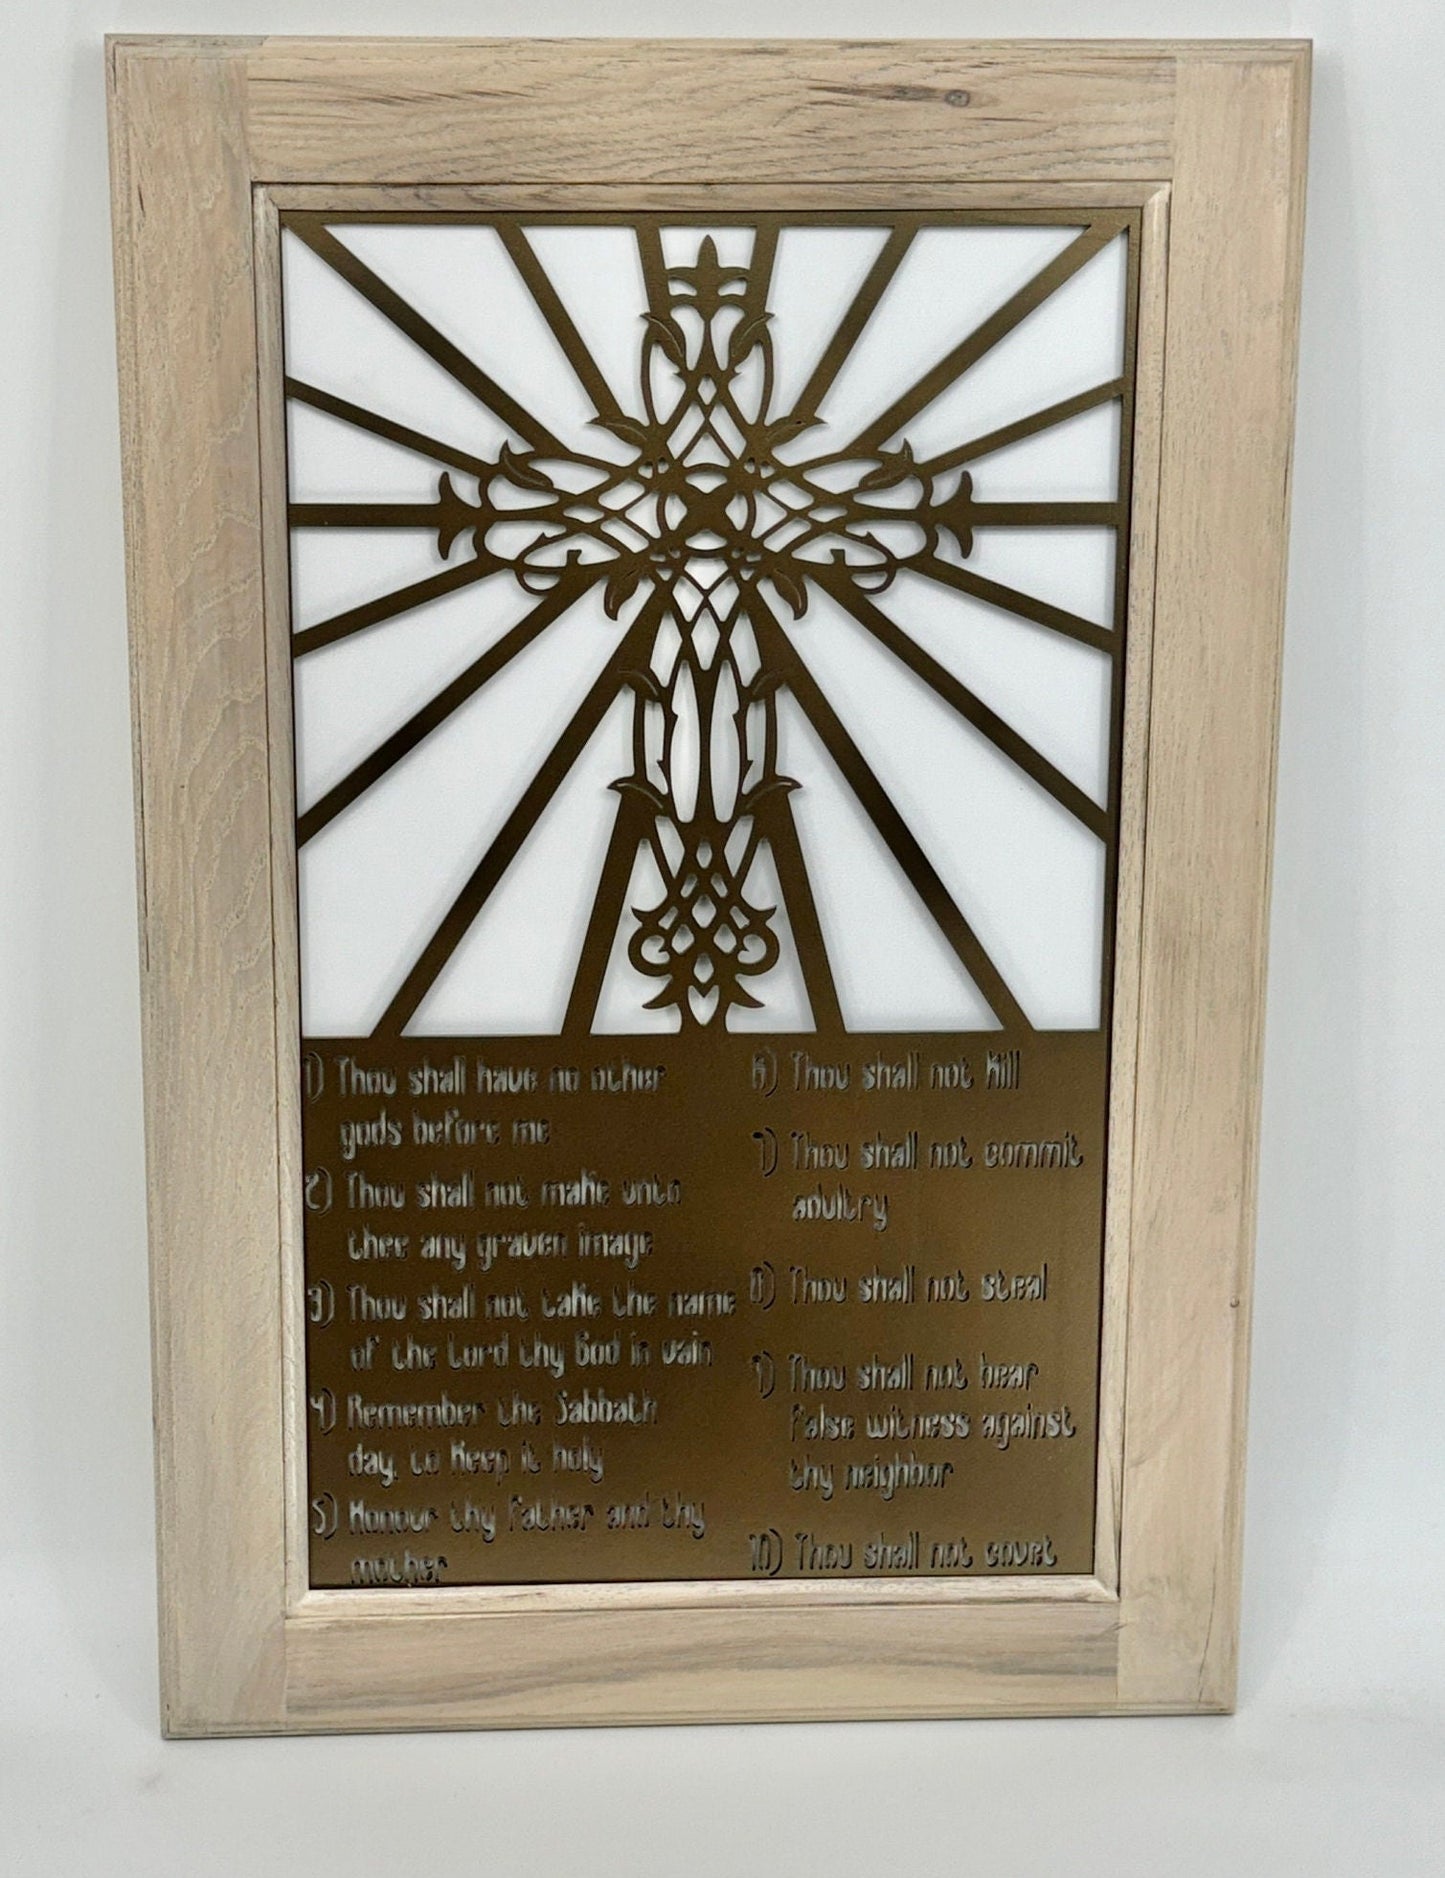 1) Thou shall have no other
gods before me
2) Thou shall not make unto
thee any graven image
3) Thou shall not take the name
of the Lord thy God in vain
4) Remember the Sabbath
day, to keep it holy
5) Honour thy father and thy
mother
6) Thou shall not kill
7) Thou shall not commit
adultry
8) Thou shall not steal
9) Thou shall not bear
false witness against
thy neighbor
10) Thou shall not covet